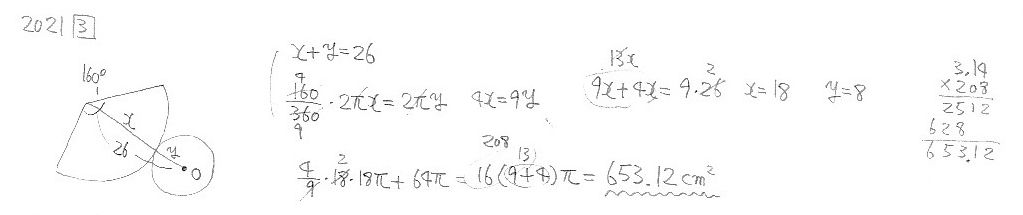 2021 3
160°
x
26
y
O
x+y=26
4
160/360 · 2πx = 2πy 4x=9y
9
13x 2
9x+4x = 9·26 x=18 y=8
208
2 13
4/9 · 18 · 18π + 64π = 16(9+4)π = 653.12 cm²
3.14
×208
2512
628
653.12